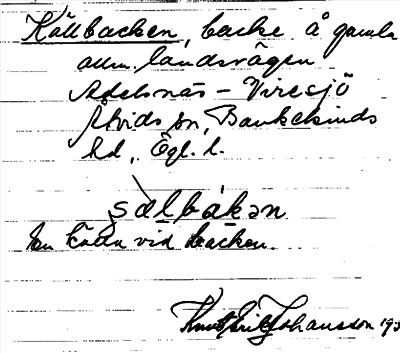 Källbacken, backe å gamla
allm. landsvägen
Adelsnäs – Viresjö
Åtvids sn, Bankekinds
hd, Ögl. l.
sælbákan
En källa vid backen.
Knut Erik Johansson 193